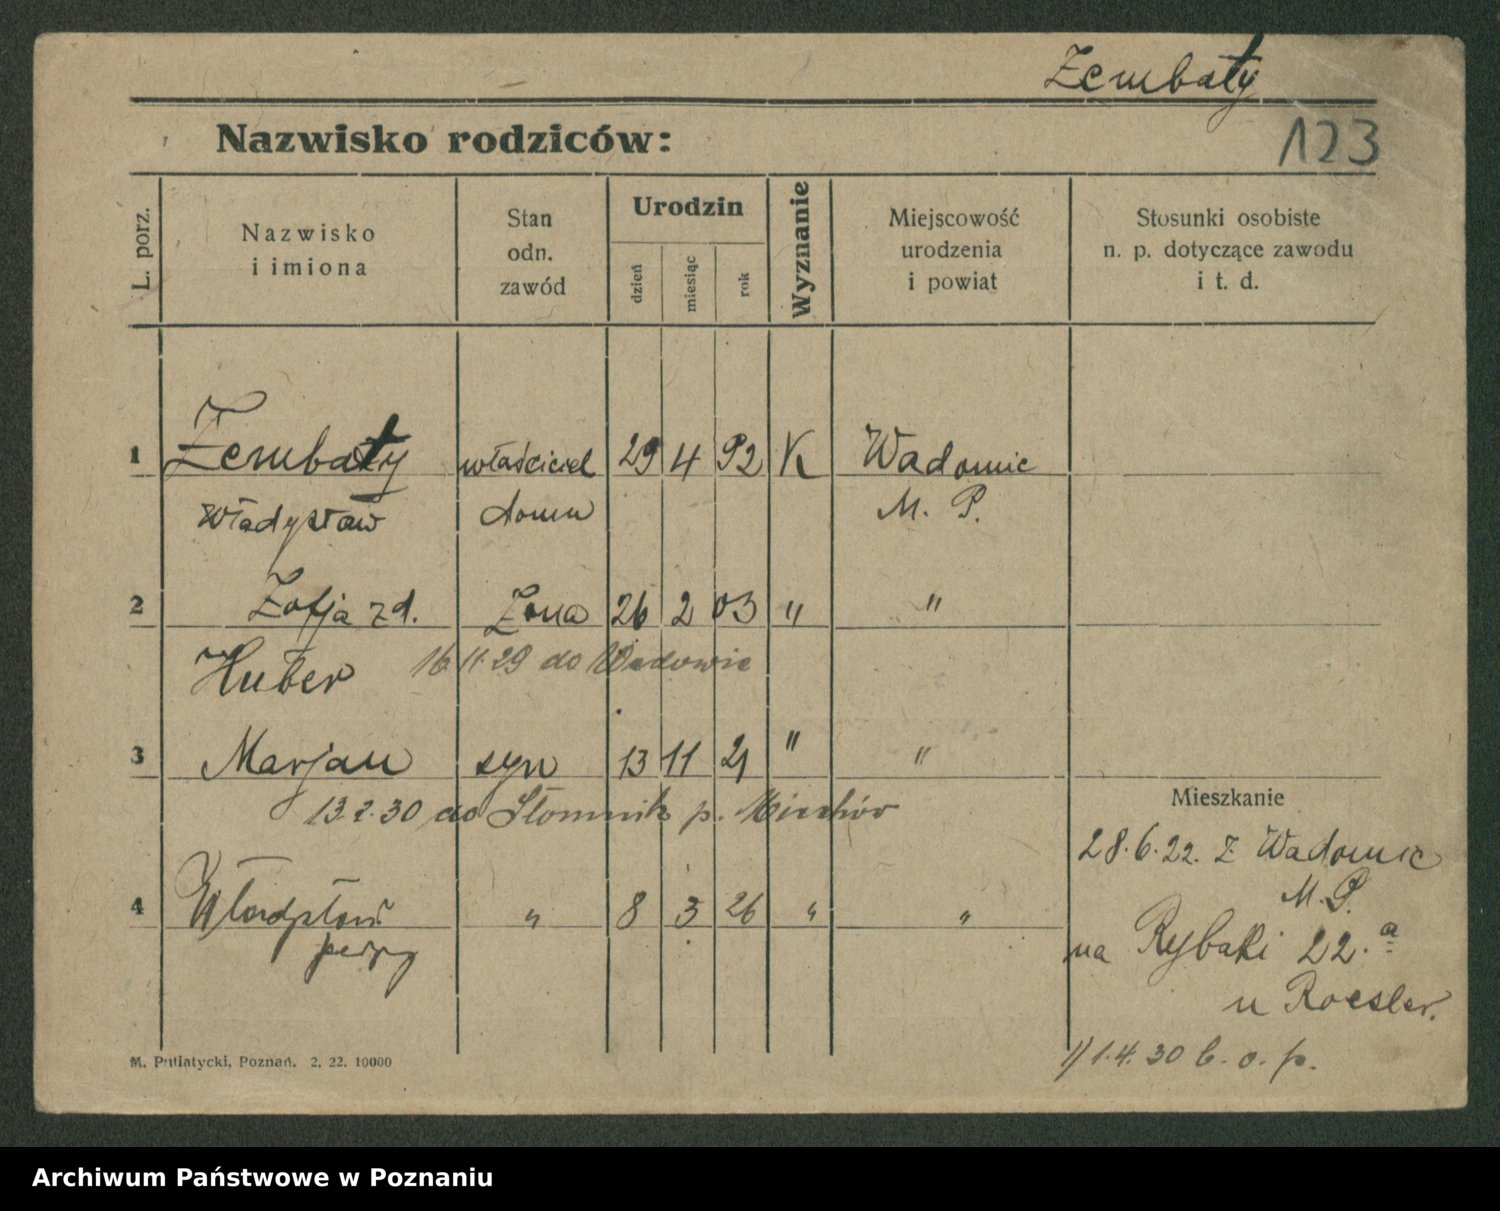 Zembaty
Nazwisko rodziców:
123
L. porz.
Nazwisko
i imiona
Stan
odn.
zawód
Urodzin
dzień
miesiąc
rok
Wyznanie
Miejscowość
urodzenia
i powiat
Stosunki osobiste
n. p. dotyczące zawodu
i t. d.
1 Zembaty właściciel 29 4 92 K Wadowic
Władysław domu M. P.
2 Zofja zd. Żona 26 2 03 " "
Huber 16 11.29 do Wadowic
3 Marjan syn 13 11 21 " "
13.2.30 do Słomnik p. Miechów
4 Władysław " 8 3 26 " "
Mieszkanie
28.6.22. z Wadowic
M. P.
na Rybaki 22.a
u Roesler.
1) 1.4.30 b. o. p.
M. Putiatycki, Poznań. 2. 22. 10000
Archiwum Państwowe w Poznaniu